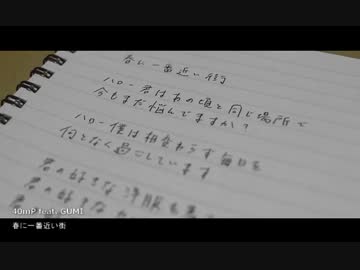 春に一番近い街
ハロー 君はあの頃と同じ場所で
今もまだ悩んでますか?
ハロー 僕は相変わらず毎日を
何となく過ごしています
君の好きな洋服も
君の好きな
40mP feat. GUMI
春に一番近い街